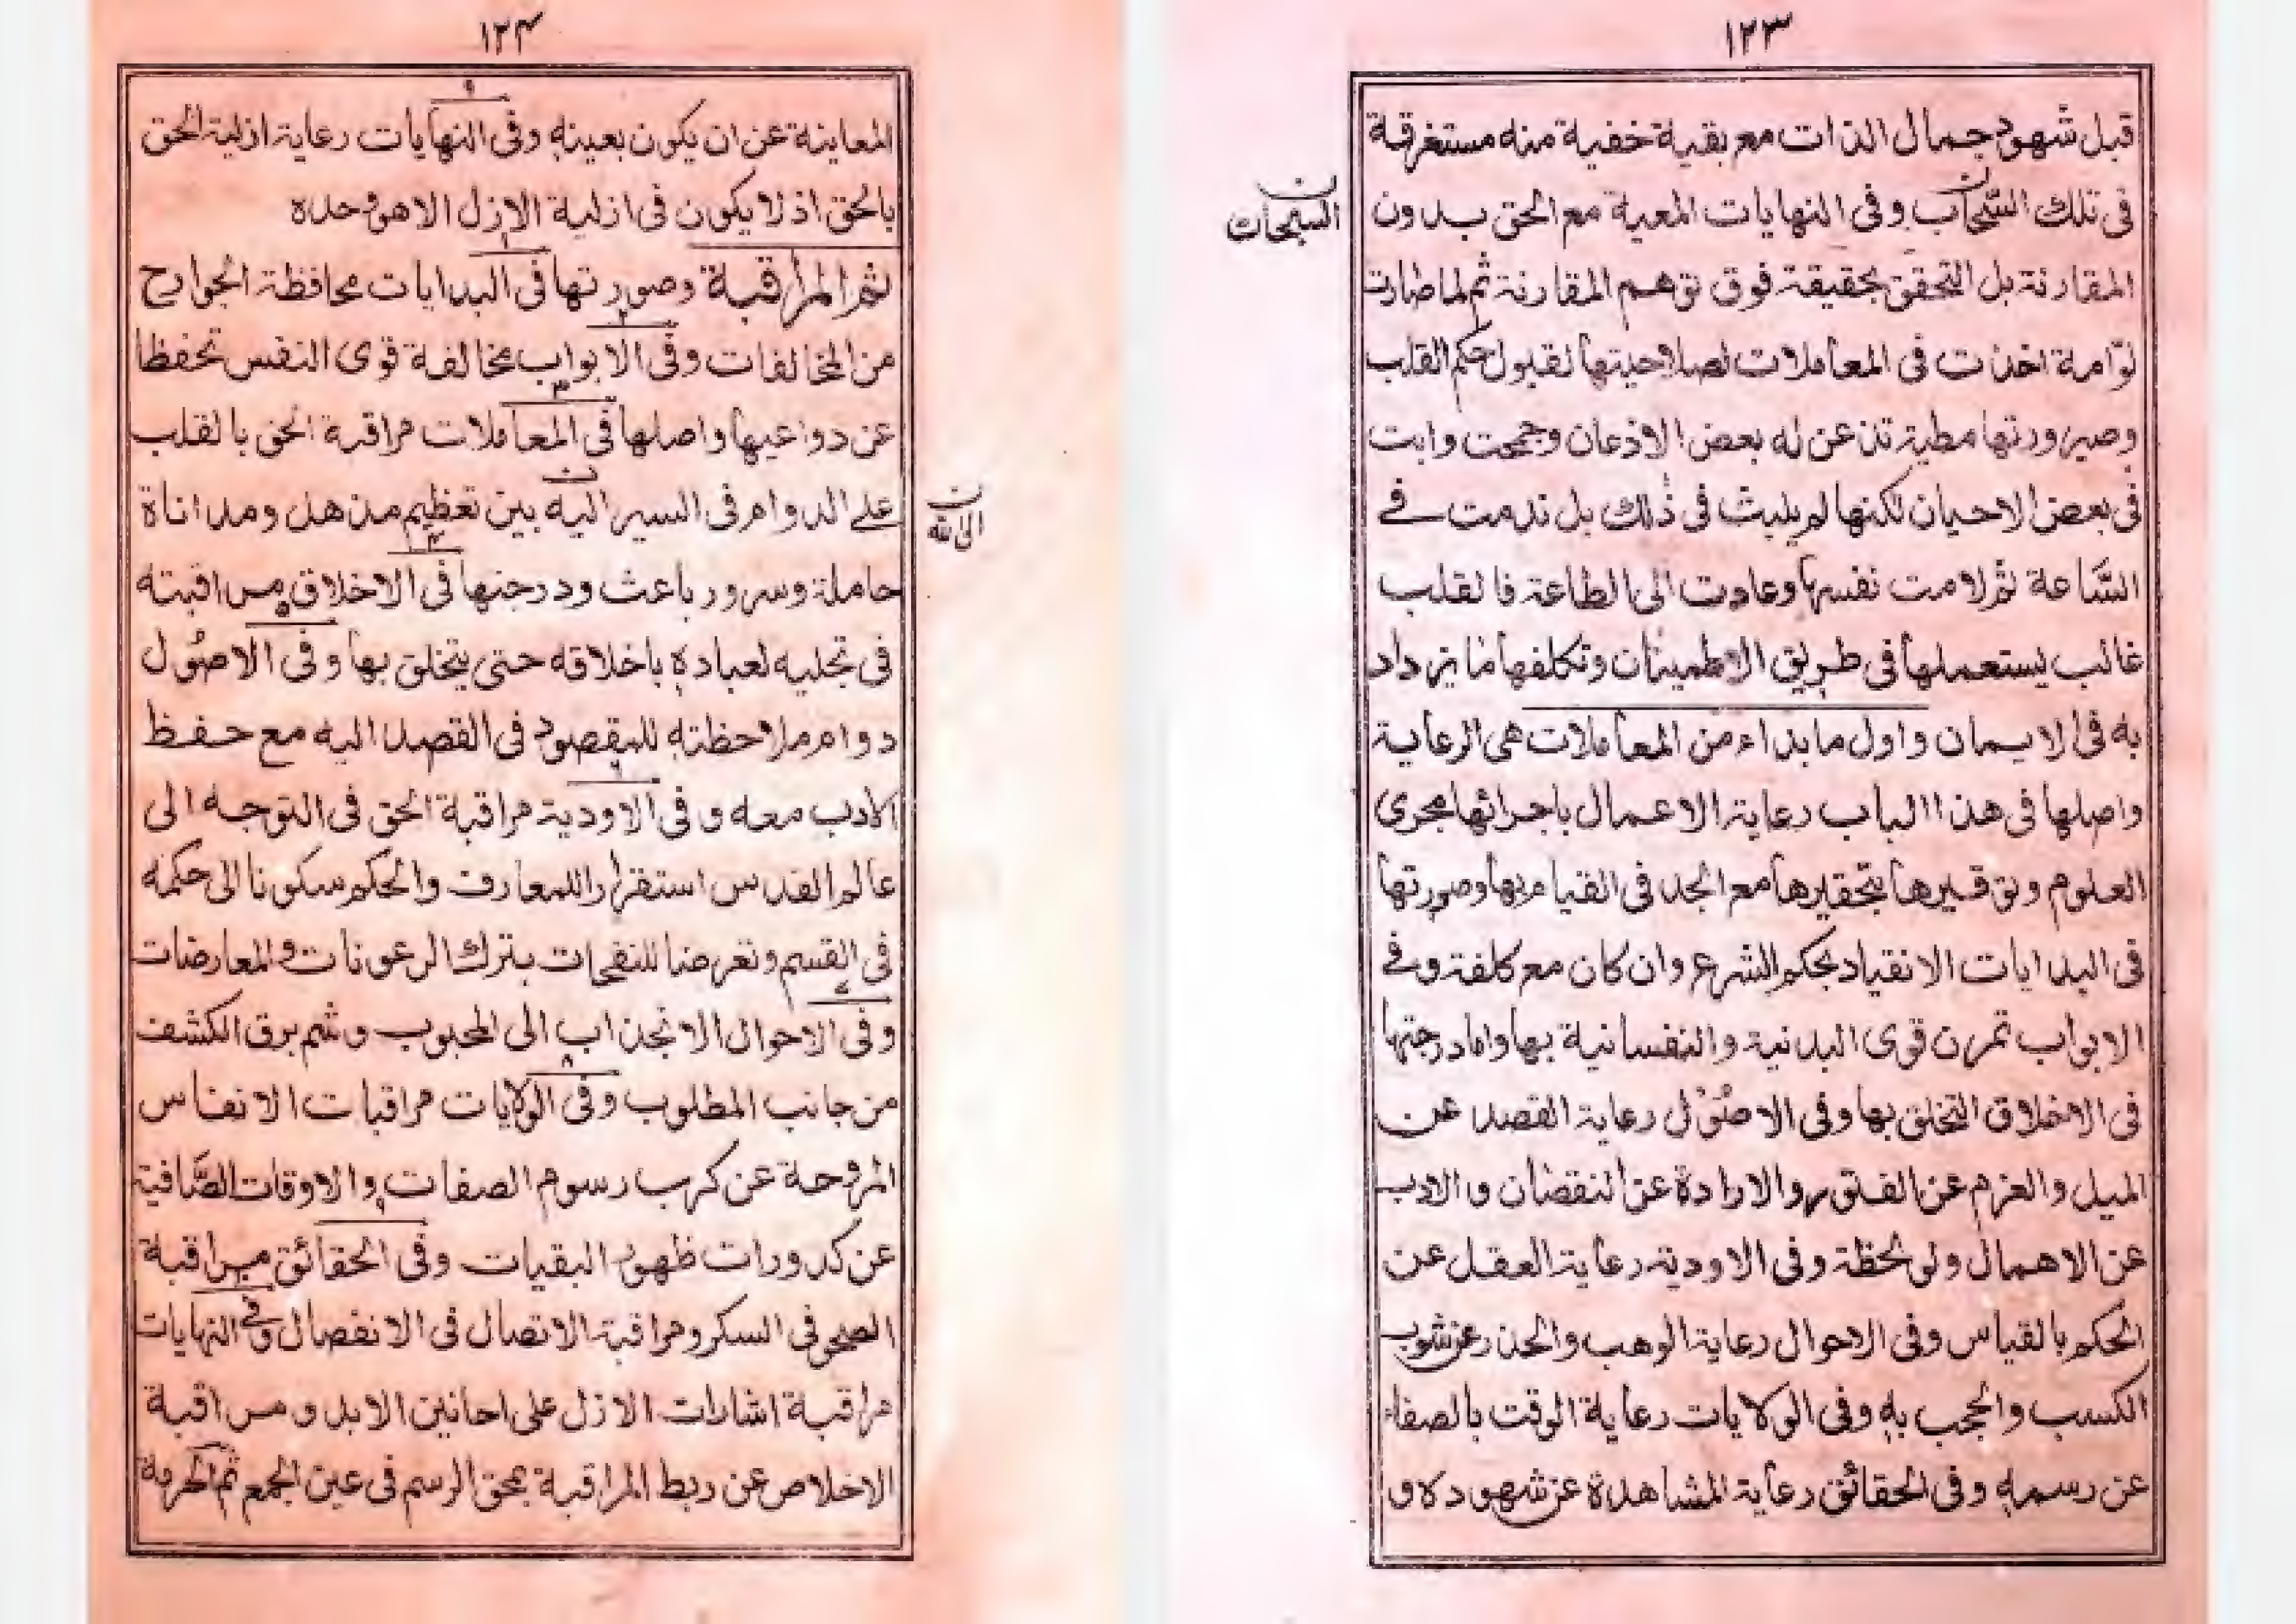 ١٢٣
قبل شهود جمال الذات مع بقية خفية منه مستغرقة
فى تلك السحاب وفى النهايات المعية مع الحق بدون
السبحات
المقارنة بل التحقق بحقيقة فوق توهم المقارنة ثم لما صارت
لوّامة اخذت فى المعاملات لصلاحيتها لقبول حكم القلب
وصيرورتها مطية تذعن له بعض الاذعان وجمحت وابت
فى بعض الاحيان لكنها لم يلبث فى ذلك بل ندمت فے
السَّاعة ثم لامت نفسها وعادت الى الطاعة فالقلب
غالب يستعملها فى طريق الاطمينان وتكلفها ما يزداد
به فى الايمان واول ما بداء من المعاملات هى الرعاية
واصلها فى هذا الباب رعاية الاعمال باجرائها مجرى
العلوم وتوقيرها بتحقيرها مع الجد فى القيام بها وصورتها
فى البدايات الانقياد بحكم الشرع وان كان مع كلفة وفے
الابواب تمرن قوى البدنية والنفسانية بها واما درجتها
فى الاخلاق التخلق بها وفى الاصُوْل رعاية القصد عن
الميل والعزم عن الفتور والارادة عن النقصان والادب
عن الاهمال ولو لحظة وفى الاودية رعاية العقل عن
الحكم بالقياس وفى الاحوال رعاية الوهب والحذر عن شوب
الكسب والحجب به وفى الولايات رعاية الوقت بالصفاء
عن رسمه وفى الحقائق رعاية المشاهدة عن شهوده و
١٢۴
المعاينة عن ان يكون بعينه وفى النهايات رعاية ازلية الحق
بالحق اذ لا يكون فى ازلية الازل الا هو وحده
ثم المراقبة وصورتها فى البدايات محافظة الجوارح
من المخالفات وفى الابواب مخالفة قوى النفس تحفظا
عن دواعيها واصلها فى المعاملات مراقبة الحق بالقلب
على الدوام فى السير اليه بين تعظيم مذهل ومداناة
الى الله
حاملة وسرور باعث ودرجتها فى الاخلاق مراقبته
فى تجليه لعباده باخلاقه حتى يتخلق بها وفى الاصُول
دوام ملاحظته للمقصود فى القصد اليه مع حفظ
الادب معه وفى الاودية مراقبة الحق فى التوجه الى
عالم القدس استقرارا للمعارف والحكم سكونا الى حكمه
فى القسم وتعرضا للنفحات بترك الرعونات والمعارضات
وفى الاحوال الانجذاب الى المحبوب وشم برق الكشف
من جانب المطلوب وفى الولايات مراقبات الانفاس
المروحة عن كرب رسوم الصفات والاوقات الصَّافية
عن كدورات ظهور البقيات وفى الحقائق مراقبة
الصحو فى السكر ومراقبة الاتصال فى الانفصال وفے النهايات
مراقبة اشارات الازل على احانين الابد ومراقبة
الاخلاص عن ربط المراقبة بمحق الرسم فى عين الجمع ثم الحرمة